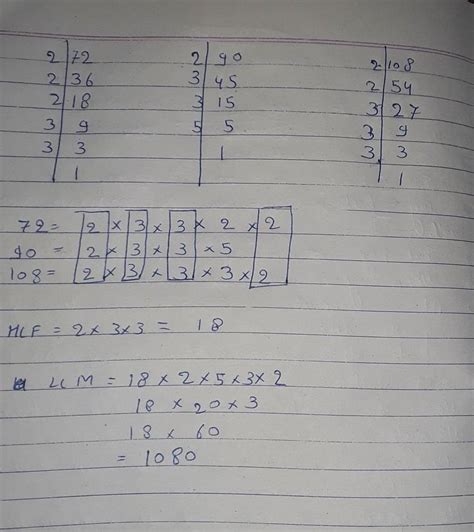 2 | 72
2 | 36
2 | 18
3 | 9
3 | 3
1
2 | 90
3 | 45
3 | 15
5 | 5
1
2 | 108
2 | 54
3 | 27
3 | 9
3 | 3
1
72 = 2 × 3 × 3 × 2 × 2
90 = 2 × 3 × 3 × 5
108 = 2 × 3 × 3 × 3 × 2
HCF = 2 × 3 × 3 = 18
LCM = 18 × 2 × 5 × 3 × 2
18 × 20 × 3
18 × 60
= 1080